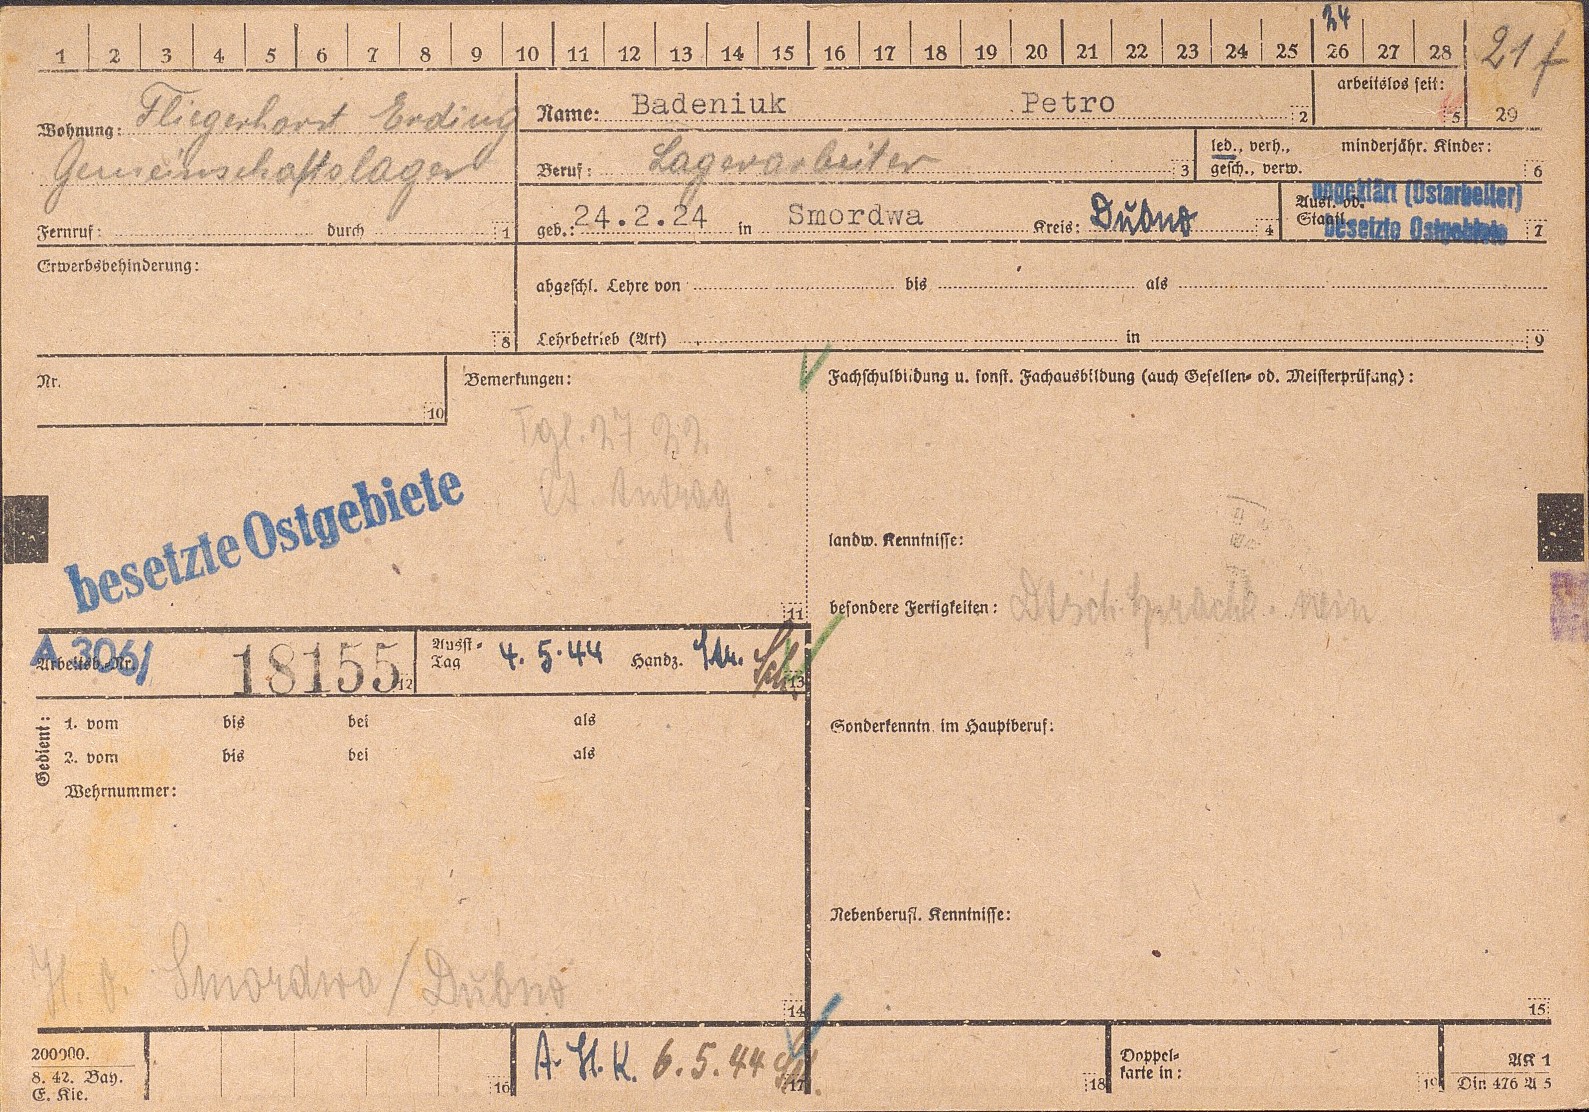 24
1 2 3 4 5 6 7 8 9 10 11 12 13 14 15 16 17 18 19 20 21 22 23 24 25 26 27 28
21 f
Wohnung: Fliegerhorst Erding
Gemeinschaftslager
Fernruf: durch 1
Name: Badeniuk Petro 2
arbeitslos seit: 5
29
Beruf: Lagerarbeiter 3
led., verh., minderjähr. Kinder:
gesch., verw. 6
geb.: 24.2.24 in Smordwa Kreis: Dubno 4
Ausl. od.
Staatl. 7
ungeklärt (Ostarbeiter)
besetzte Ostgebiete
Erwerbsbehinderung: 8
abgeschl. Lehre von bis als
Lehrbetrieb (Art) in 9
Nr. 10
Bemerkungen:
Tgl. 27
Lt. Antrag
11
besetzte Ostgebiete
Fachschulbildung u. sonst. Fachausbildung (auch Gesellen- od. Meisterprüfung):
landw. Kenntnisse:
besondere Fertigkeiten: Dtsch. Sprachk. nein
Sonderkenntn. im Hauptberuf:
Nebenberufl. Kenntnisse:
15
A 306/
Arbeitsb.-Nr. 18155 12
Ausst.-
Tag 4.5.44 Handz. 13
Gedient:
1. vom bis bei als
2. vom bis bei als
Wehrnummer:
H. O. Smordwa / Dubno
14
200000.
8. 42. Bay.
E. Kie.
16
A. H. K. 6.5.44 17
18
Doppel-
karte in: 19
AK 1
Din 476 A 5